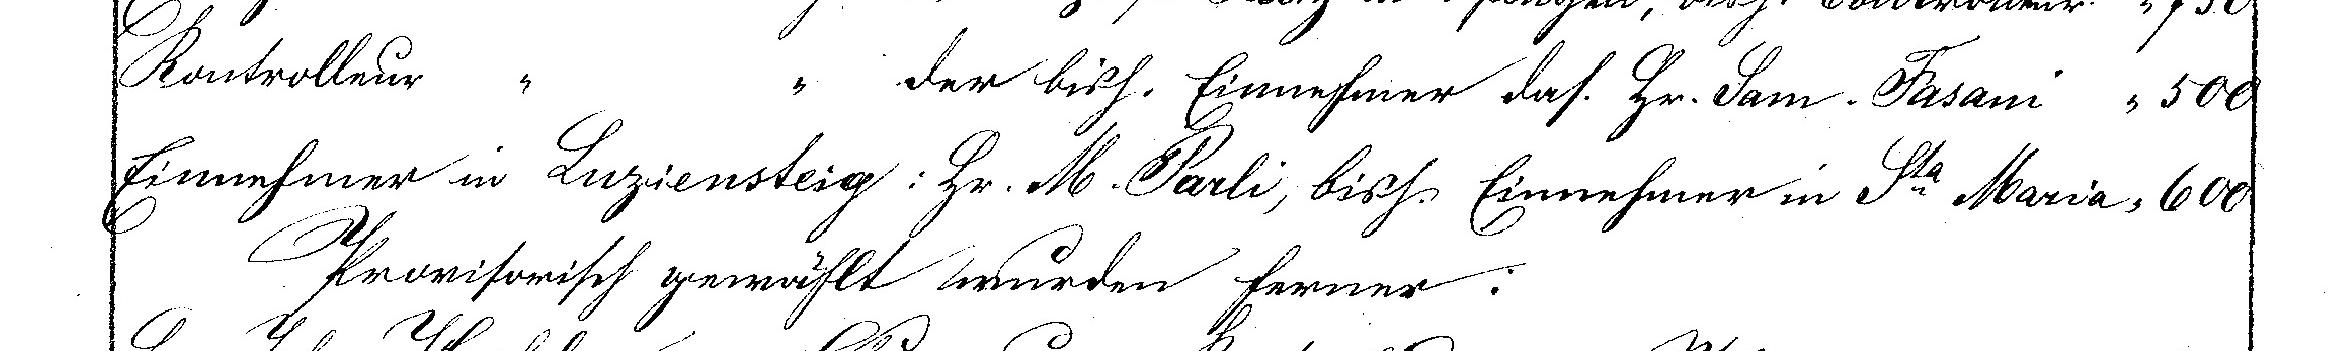 Kontrolleur " " der bish. Einnehmer das. Hr. Sam. Fasani " 500
Einnehmer in Luziensteig: Hr. M. Parli, bish. Einnehmer in Sta Maria " 600
Provisorisch gewählt wurden ferner: